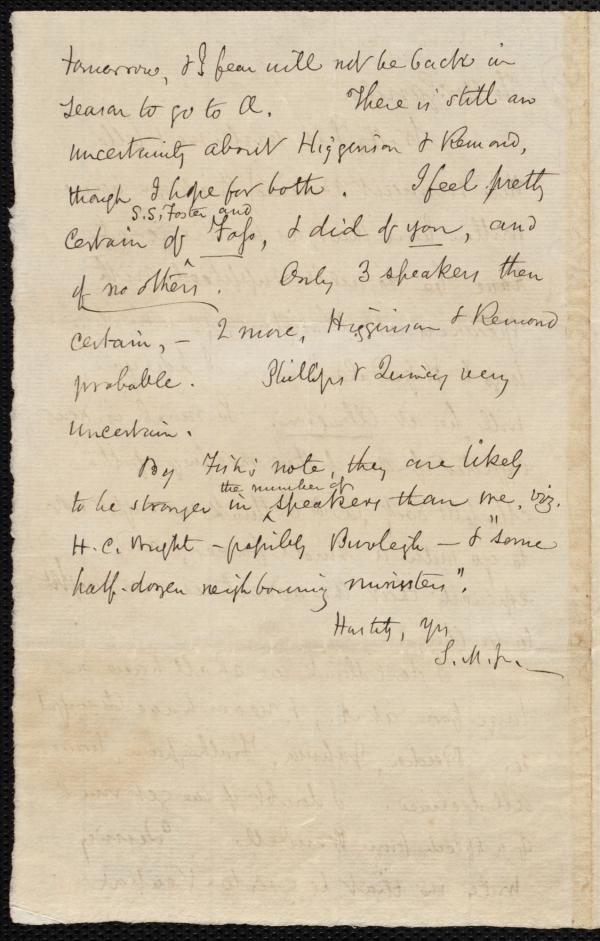 tomorrow, & I fear will not be back in
season to go to A. There is still an
uncertainty about Higginson & Remond,
though I hope for both. I feel pretty
S.S. Foster and
certain of Foss, & did of you, and
of no others. Only 3 speakers then
certain, – 2 more, Higginson & Remond
probable. Phillips & Quincy very
uncertain.
By Fish's note, they are likely
the number of
to be stronger in speakers than we, viz.
H. C. Wright – possibly Burleigh – & "some
half-dozen neighbouring ministers".
Hastily, Yrs
S. M. Jr.